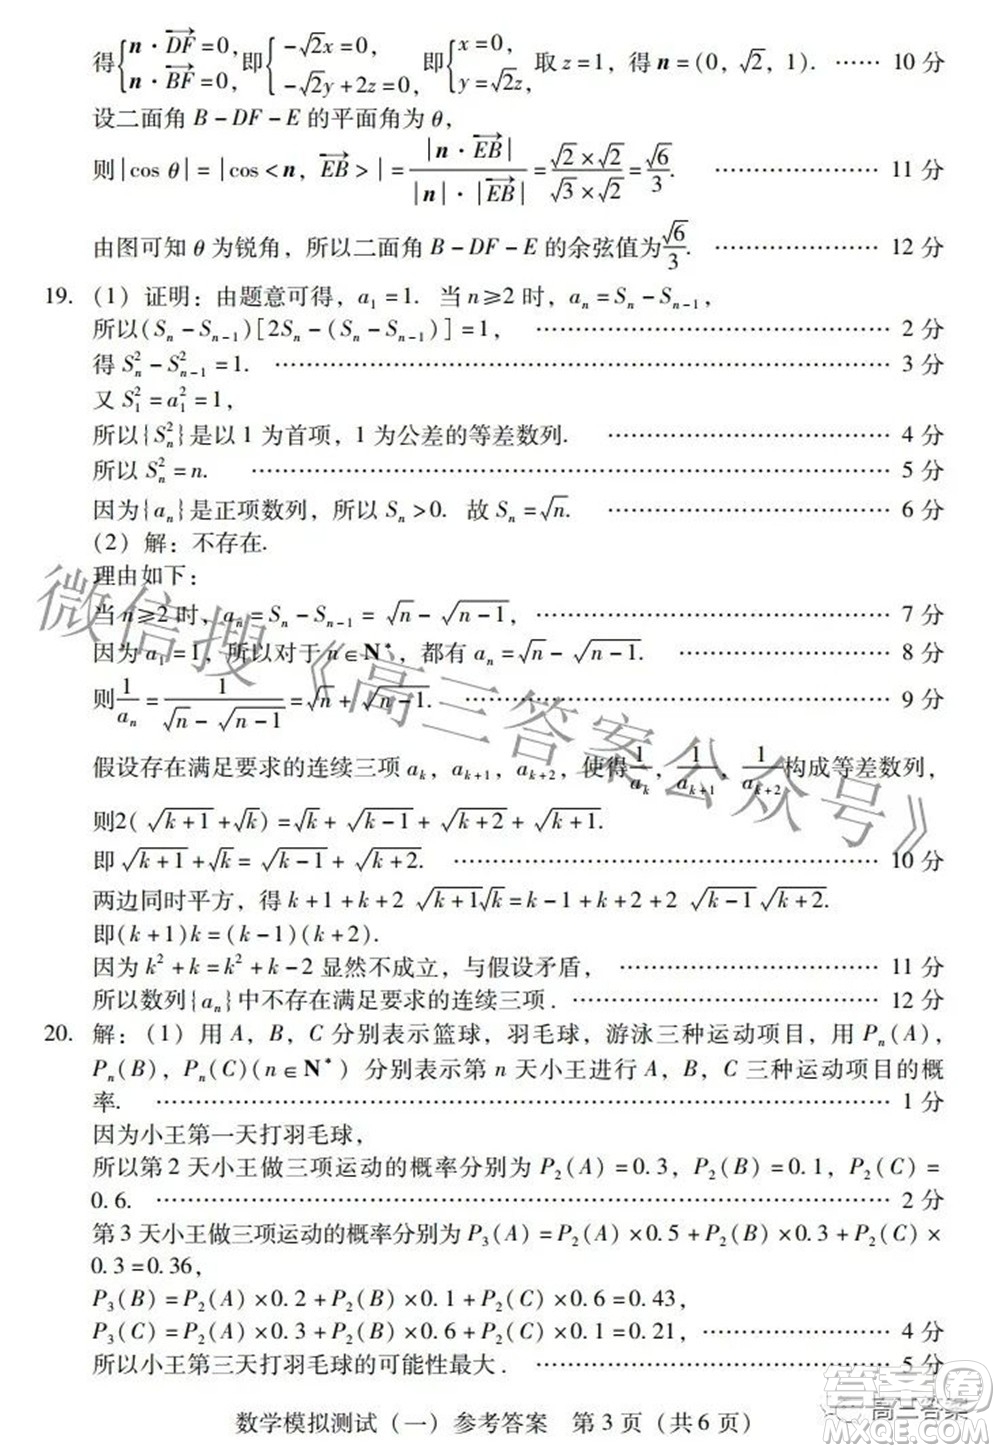 得{n·DF→=0, n·BF→=0, 即{-√2x=0, -√2y+2z=0, 即{x=0, y=√2z, 取z=1，得n=(0，√2，1). …… 10分
设二面角B-DF-E的平面角为θ，
则|cos θ|=|cos<n，EB→>|=|n·EB→|/(|n|·|EB→|)=(√2×√2)/(√3×√2)=√6/3. …… 11分
由图可知θ为锐角，所以二面角B-DF-E的余弦值为√6/3. …… 12分
19. (1) 证明：由题意可得，a₁=1. 当n≥2时，aₙ=Sₙ-Sₙ₋₁，
所以(Sₙ-Sₙ₋₁)[2Sₙ-(Sₙ-Sₙ₋₁)]=1， …… 2分
得Sₙ²-Sₙ₋₁²=1. …… 3分
又S₁²=a₁²=1，
所以{Sₙ²}是以1为首项，1为公差的等差数列. …… 4分
所以Sₙ²=n. …… 5分
因为{aₙ}是正项数列，所以Sₙ>0. 故Sₙ=√n. …… 6分
(2) 解：不存在.
理由如下：
当n≥2时，aₙ=Sₙ-Sₙ₋₁=√n-√(n-1)， …… 7分
因为a₁=1，所以对于n∈N*，都有aₙ=√n-√(n-1). …… 8分
则1/aₙ=1/(√n-√(n-1))=√n+√(n-1). …… 9分
假设存在满足要求的连续三项aₖ，aₖ₊₁，aₖ₊₂，使得1/aₖ，1/aₖ₊₁，1/aₖ₊₂构成等差数列，
则2(√(k+1)+√k)=√k+√(k-1)+√(k+2)+√(k+1).
即√(k+1)+√k=√(k-1)+√(k+2). …… 10分
两边同时平方，得k+1+k+2√(k+1)√k=k-1+k+2+2√(k-1)√(k+2).
即(k+1)k=(k-1)(k+2).
因为k²+k=k²+k-2显然不成立，与假设矛盾， …… 11分
所以数列{aₙ}中不存在满足要求的连续三项. …… 12分
20. 解：(1) 用A，B，C分别表示篮球，羽毛球，游泳三种运动项目，用Pₙ(A)，
Pₙ(B)，Pₙ(C)(n∈N*)分别表示第n天小王进行A，B，C三种运动项目的概
率. …… 1分
因为小王第一天打羽毛球，
所以第2天小王做三项运动的概率分别为P₂(A)=0.3，P₂(B)=0.1，P₂(C)=
0.6. …… 2分
第3天小王做三项运动的概率分别为P₃(A)=P₂(A)×0.5+P₂(B)×0.3+P₂(C)×
0.3=0.36，
P₃(B)=P₂(A)×0.2+P₂(B)×0.1+P₂(C)×0.6=0.43，
P₃(C)=P₂(A)×0.3+P₂(B)×0.6+P₂(C)×0.1=0.21， …… 4分
所以小王第三天打羽毛球的可能性最大. …… 5分
数学模拟测试（一）参考答案 第3页（共6页）
微信搜《高三答案公众号》
高三答案
答案圈